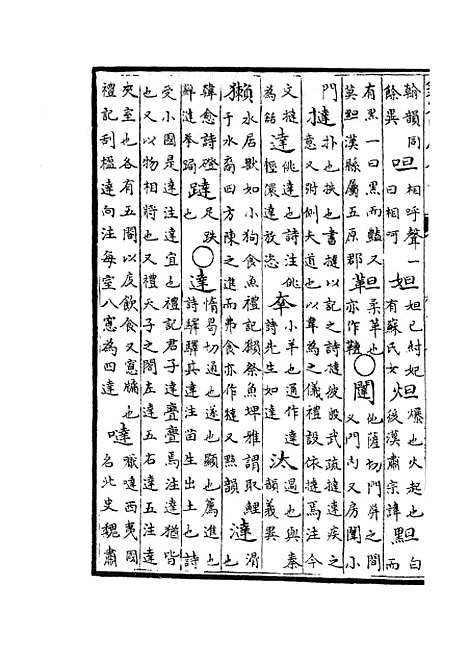 翰韻同餘異呾相呼聲一曰相呵妲妲己紂妃有蘇氏女炟爆也火起也後漢肅宗諱䵣白而
有黑一曰黑而豔又莫䵣漢縣屬五原郡𩊅柔革也亦作韃○闥他薩切門屏之間又門內又房闥小
門撻扑也抶也書撻以記之詩撻彼殷武疏撻達疾之意又附例大道也以韋為之儀禮設依撻焉注今
文撻為銛達佻達也詩注佻輕儇達放恣羍小羊也通作達詩先生如達汏過也與泰韻義異
獺水居獸如小狗食魚禮記獺祭魚埤雅謂取鯉于水裔四方陳之進而弗食亦作又黠韻澾滑也
韓愈詩磴蘚澾拳跼躂足跌也○達惰曷切通也遂也顯也薦進也詩驛驛其達注苗生出土也詩
受小國是達注達宜也禮記君子達亹亹焉注達猶皆也又以物相將也又禮天子之閣左達五右達五注達
夾室也各有五閣以庋飲食又窻牖也禮記刮楹達向注每室八窻為四達噠嚈噠西夷國名北史魏肅